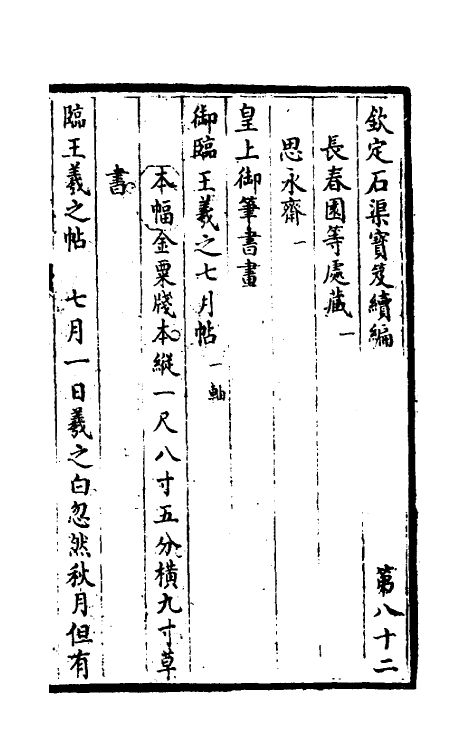 欽定石渠寶笈續編　第八十二
長春園等處藏一
思永齋一
皇上御筆書畫
御臨王羲之七月帖一軸
本幅金粟牋本縱一尺八寸五分橫九寸草
書
臨王羲之帖　七月一日羲之白忽然秋月但有